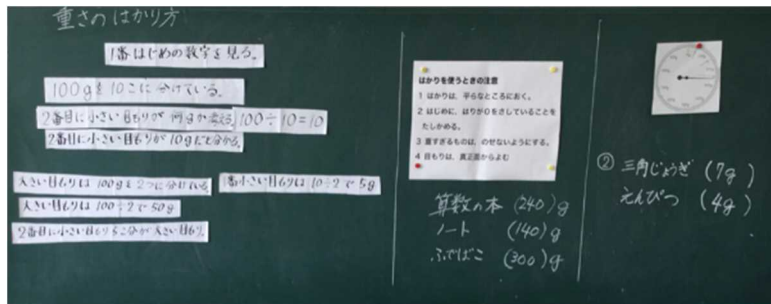 重さのはかり方
1番はじめの数字を見る。
100gを10こに分けている。
2番目に小さい目もりが何gか考える。100÷10=10
2番目に小さい目もりが10gだと分かる。
大きい目もりは100gを2つに分けている。
1番小さい目もりは10÷2で5g
大きい目もりは100÷2で50g
2番目に小さい目もり5こ分が大きい目もり。
はかりを使うときの注意
1 はかりは、平らなところにおく。
2 はじめに、はりが0をさしていることを
たしかめる。
3 重すぎるものは、のせないようにする。
4 目もりは、真正面からよむ
算数の本 (240)g
ノート (140)g
ふでばこ (300)g
② 三角じょうぎ (7g)
えんぴつ (4g)